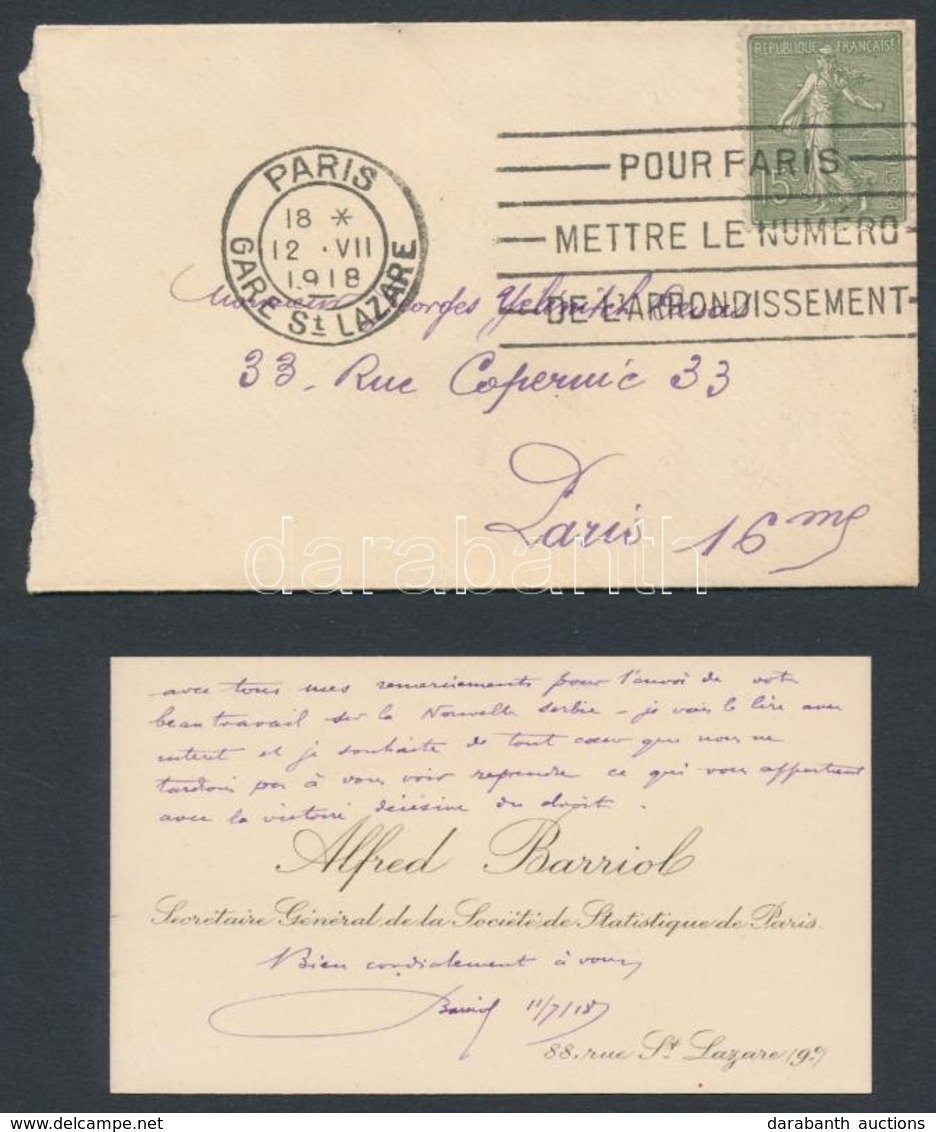 REPUBLIQUE FRANÇAISE
15
POSTES
POUR PARIS
METTRE LE NUMÉRO
DE L'ARRONDISSEMENT
PARIS
18 *
12 · VII
1918
GARE St LAZARE
Monsieur Georges
33. Rue Copernic 33
Paris 16 me
darabanth
avec tous mes remerciements pour l'envoi de votre
beau travail sur la Nouvelle Serbie - je vais le lire avec
intérêt et je souhaite de tout cœur que nous ne
tardions pas à vous voir reprendre ce qui vous appartient
avec la victoire décisive du droit.
Alfred Barriol
Secrétaire Général de la Société de Statistique de Paris.
Bien cordialement à vous
Barriol 11/7/18
88, rue St. Lazare (9e)
darabanth-auctions.delcampe.net
darabanth auctions